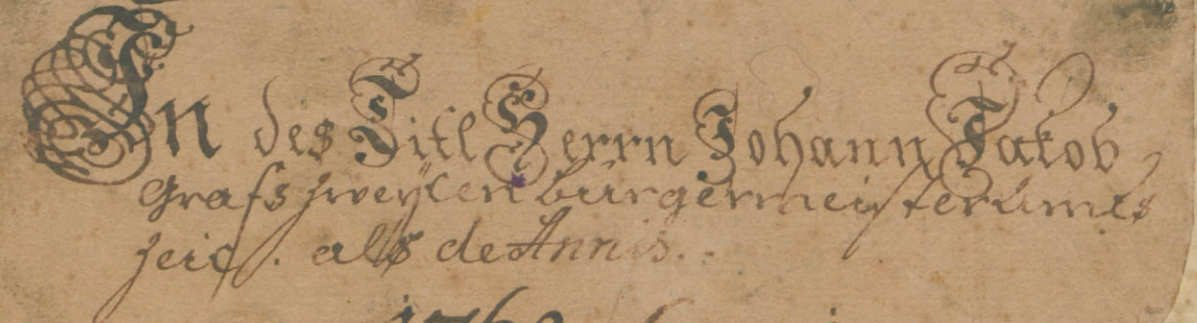 In des Titl Herrn Johann Jakob
Grafs zweyten bürgermeister amts
zeit. als de Annis.